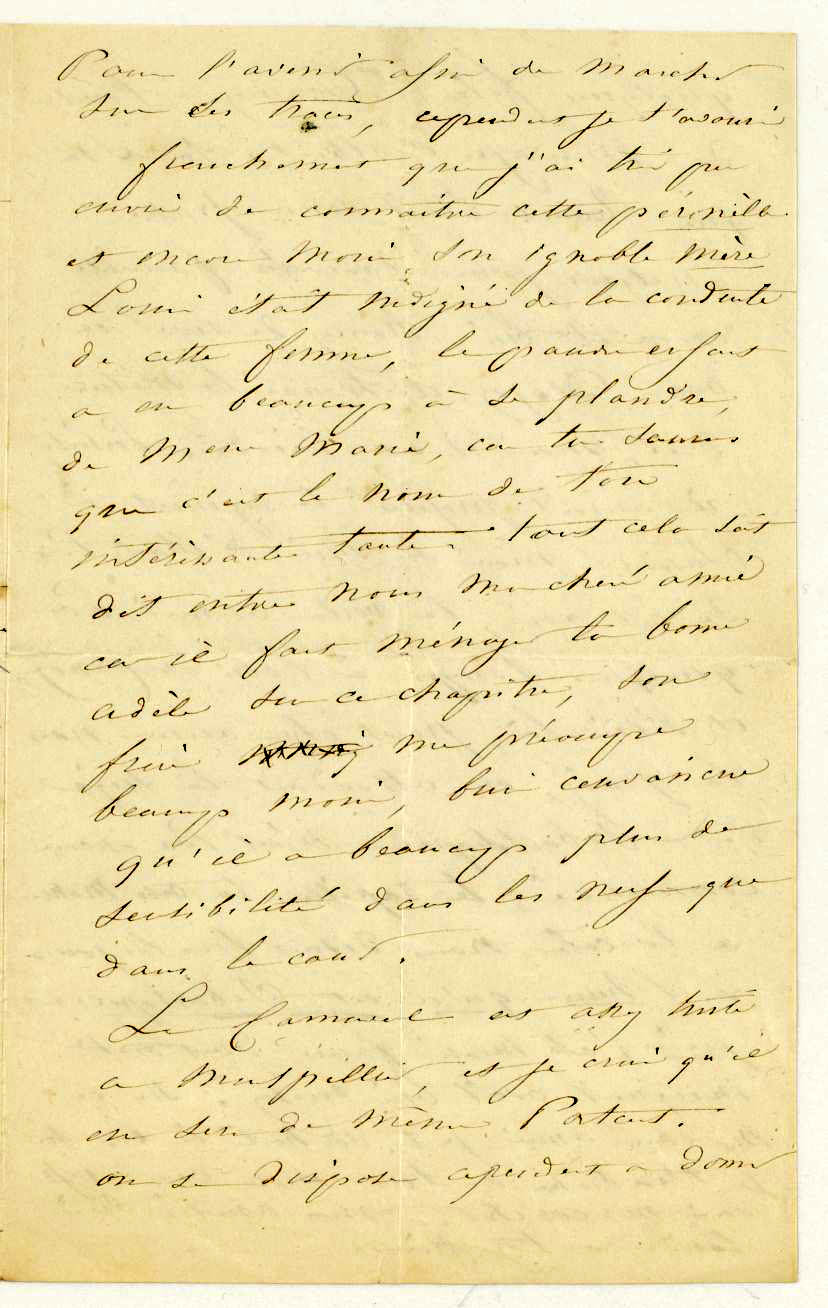 Pour l'avenir afin de marcher
sur ses traces, cependant je t'avouerai
franchement que j'ai très peu
envie de connaitre cette péronèle
et encore moins son ignoble mère
Louis était indigné de la conduite
de cette femme, le pauvre enfant
a eu beaucoup à se plandre,
de Mme Marie, car tu sauras
que c'est le nom de ton
intéressante tante. tout cela soit
dit entre nous ma chere amie
car il faut ménager ta bonne
adèle sur ce chapitre, son
frere me préoccupe
beaucoup moins, bien convaincue
qu'il a beaucoup plus de
sensibilité dans les nerfs que
dans le cœur.
Le Carnaval est assez triste
a Montpellier, et je crois qu'il
en sera de même Partout.
on se dispose cependant a donner